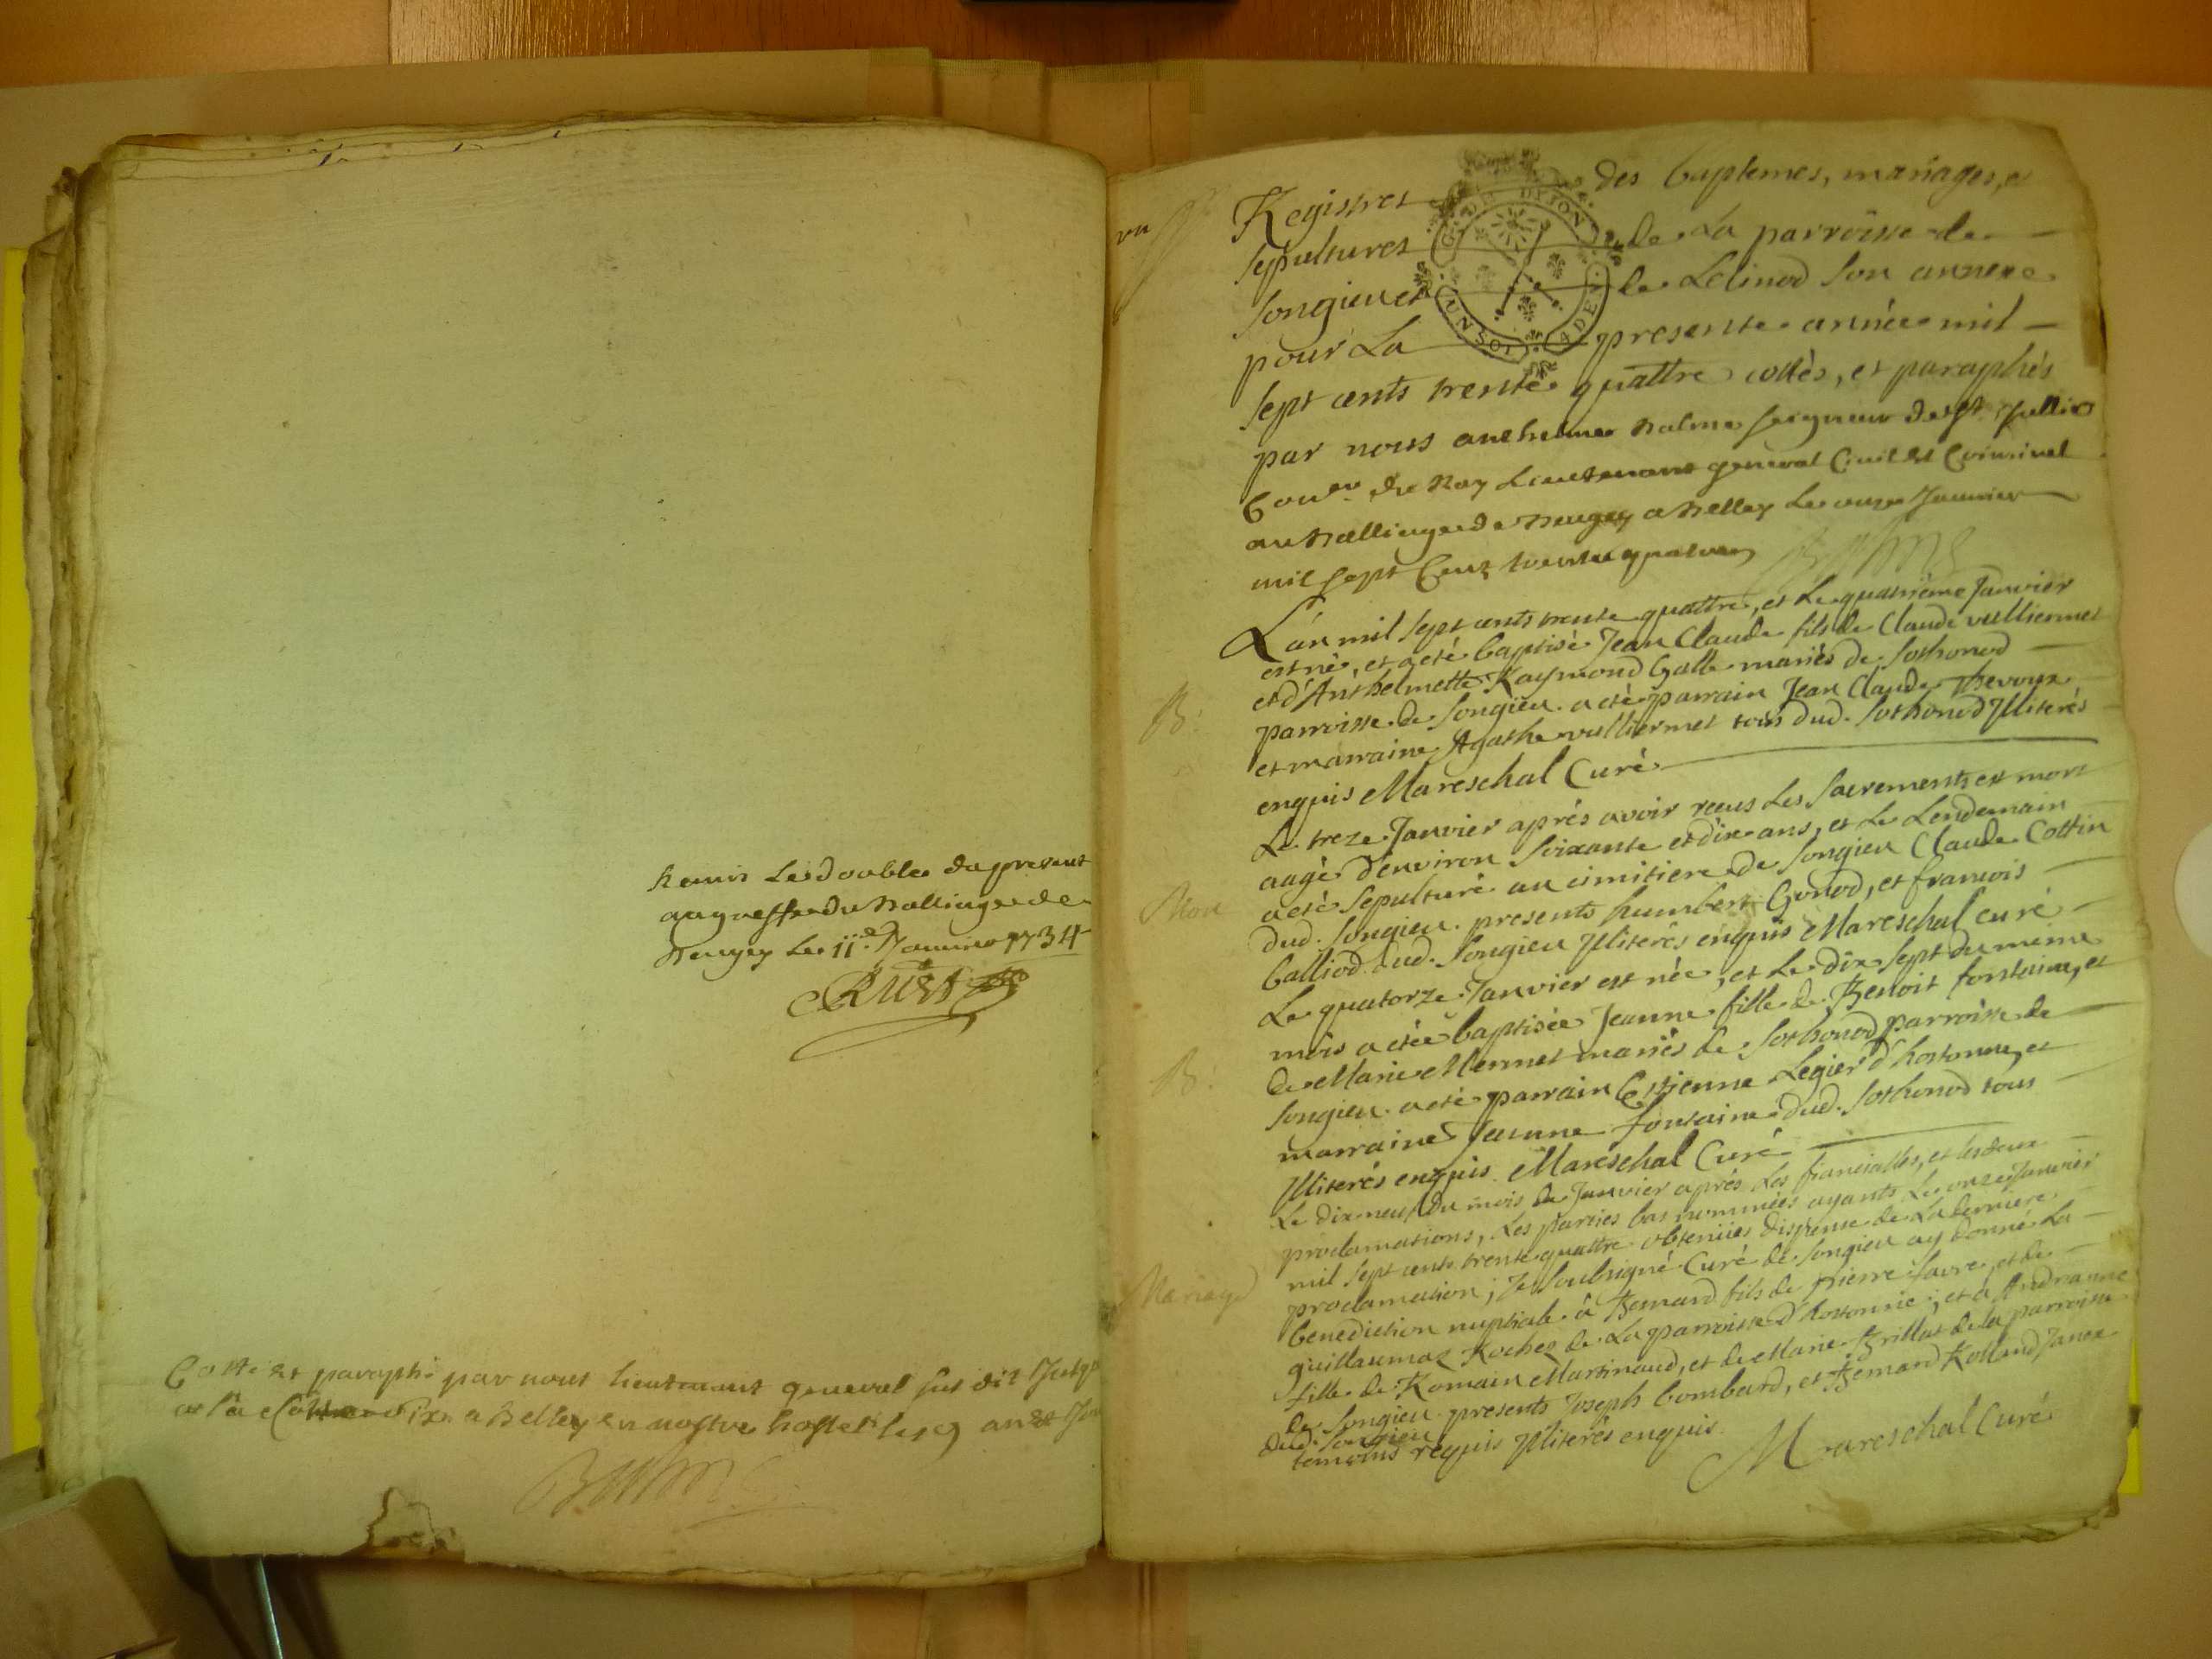 Remis Le double du present
au greffe du Balliage de
Beugey Le 11e. Janvier 1734
Cotté et paraphé par nous lieutenant general sus dit
a Belley en nostre hostel les an et
Registres des baptemes, mariages, et
sepultures de La parroisse de
songieu et de Lelinod son annexe
pour La presente année mil
G. DE DIJON
UN SOL
sept cents trente quattre cottés, et paraphés
par nous anthelme Balme seigneur de st Jullin
Couer. du Roy Lieutenant general Civil et Criminel
au Balliage de Beugey a Belley Le onze Janvier
mil sept Cent trente quatre
L'an mil sept cents trente quattre, et Le quatrième Janvier
est né, et a eté baptisé Jean Claude fils de Claude vulliermet
et d'Anthelmette Raymond Galle mariés de sothonod
B:
parroisse de songieu. a eté parrain Jean Claude Thevoux
et marraine Agathe vulliermet tous dud. sothonod Illiterés
enquis Mareschal Curé
Le treze Janvier aprés avoir receus Les sacrements est mort
aagé d'environ soixante et dix ans, et Le Lendemain
Mort
a eté sepulturé au cimitiere de songieu Claude Cottin
dud. songieu. presents humbert Gonod, et francois
balliod dud. songieu Illiterés enquis Mareschal curé
Le quatorze Janvier est née, et Le dix sept du même
mois a etée baptisée Jeanne fille de Benoit fontaine, et
B:
de Marie Mermet mariés de sothonod parroisse de
songieu. a eté parrain Estienne Legier d'hostonne, et
marraine Jeanne fontaine dud. sothonod tous
Illiterés enquis. Mareschal Curé
Le dix neuf du mois de Janvier aprés Les fiancialles, et les deux
proclamations, Les parties bas nommées ayants Le onze Janvier
mil sept cents trente quattre obtenües dispense de La derniere
Mariage
proclamation; Je soubsigné Curé de songieu ay donné La
benediction nuptiale à Bernard fils de pierre favre, et de
guillaumaz Rochez de La parroisse d'hostonne; et à Andreanne
fille de Romain Martinaud, et de Marie Brillat de la parroisse
de songieu. presents Joseph bombard, et Bernard Rolland Janex
dud. songieu
temoins requis Illiterés enquis.
Mareschal Curé